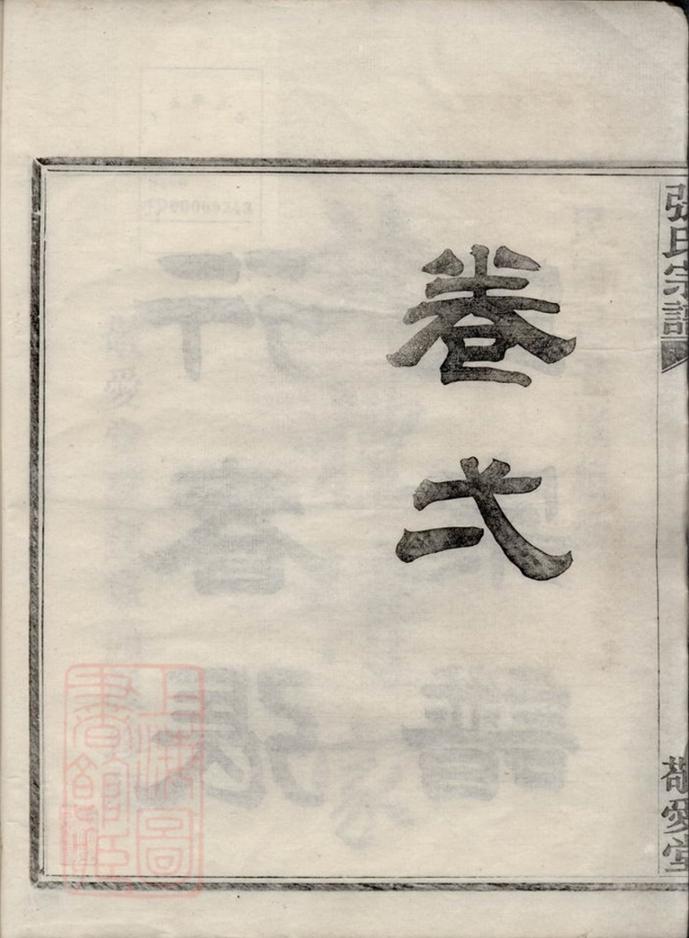 張氏宗譜
敬愛堂
卷弌
上海圖
書館藏